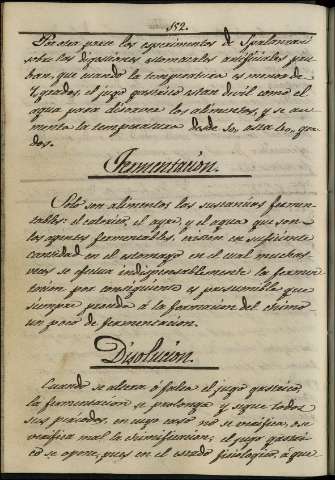 152.
Por otra parte los esperimentos de Spalanzani
sobre las digestiones estomacales artificiales prue
ban, que cuando la temperatura es menor de
7 grados, el jugo gastrico es tan debil como el
agua para disolver los alimentos, y se au-
menta la temperatura desde 30, asta 40, gra-
dos.
Fermentacion.
Solo son alimentos las sustancias fermen-
tables: el calorico, el ayre, y el agua que son
los agentes fermentables, existen en suficiente
cantidad en el estomago en el cual muchas
veces se efectua indispensablemente la fermen
tacion por consiguiente es presumible que
siempre preceda á la formacion del chimo
un poco de fermentacion.
Disolucion.
Cuando se altera ó falta el jugo gastrico,
la fermentacion se prolonga y sigue todos
sus periodos, en cuyo caso no se verifica, ó se
verifica mal la chimificacion; el jugo gastri
co se opone, pues en el estado fisiologico, á que